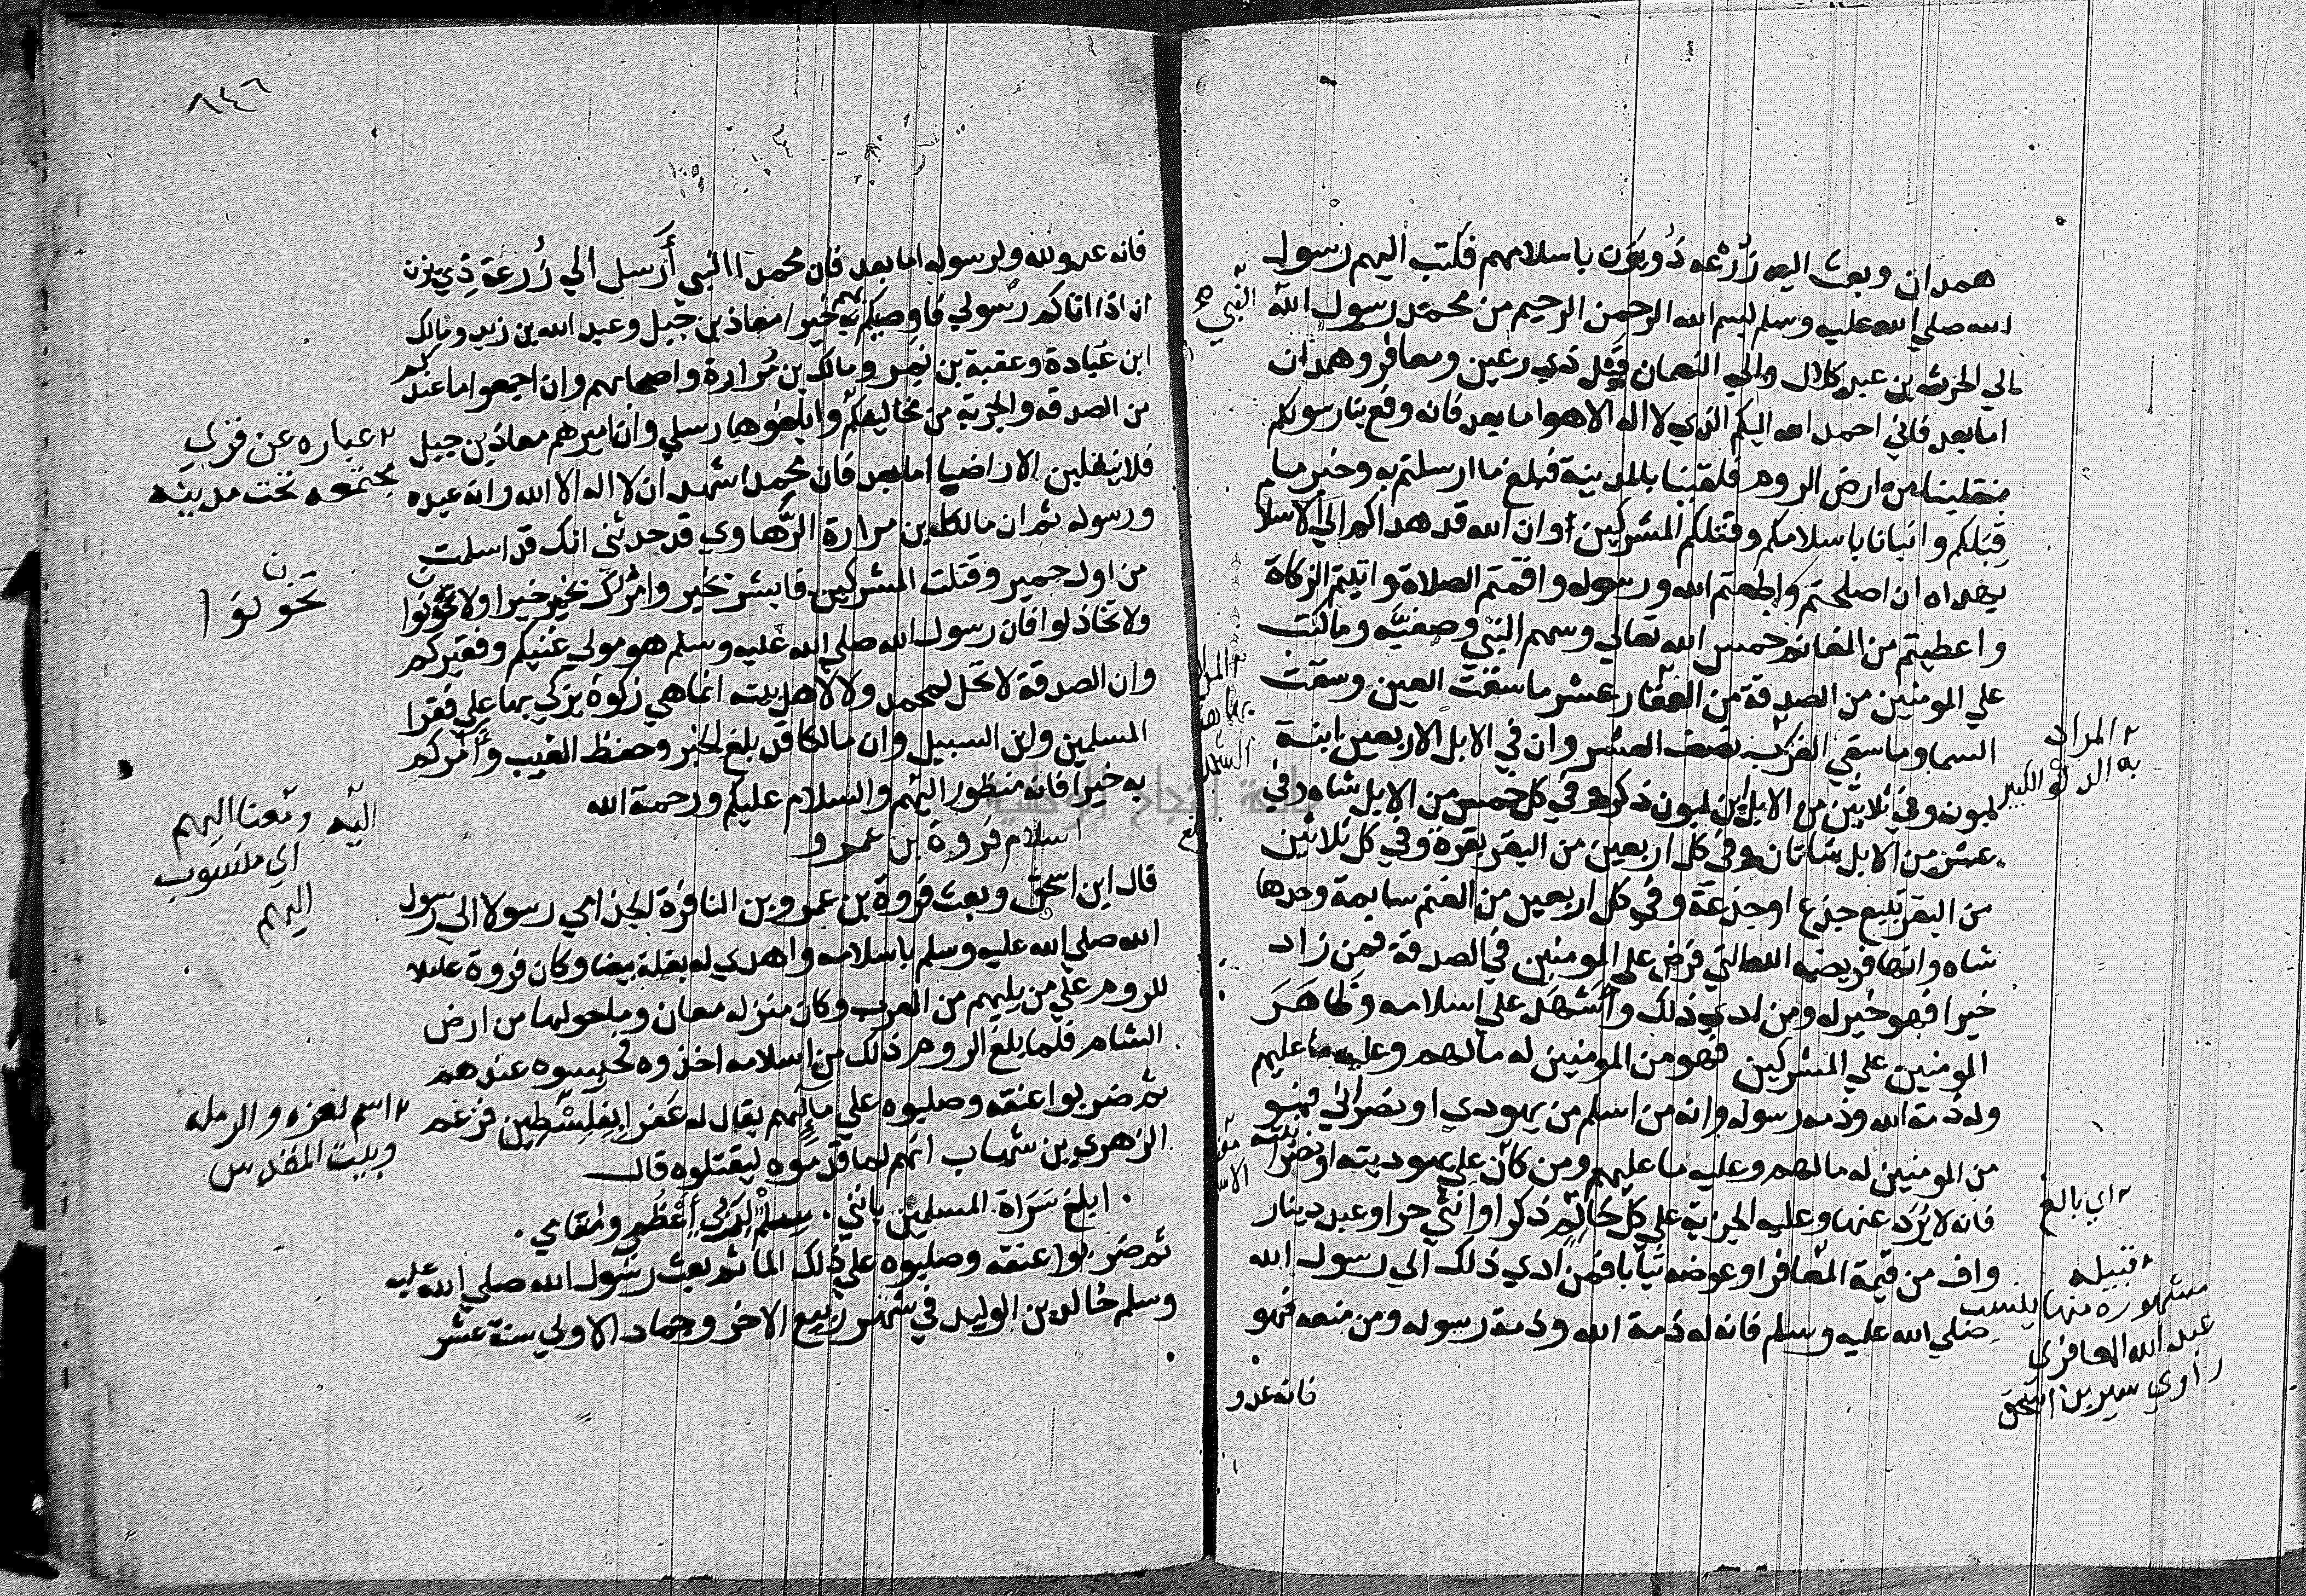 همدان وبعث اليه زُرْعه ذُويَزَن باسلامهم فكتب اليهم رسول
الله صلي الله عليه وسلم بسم الله الرحمن الرحيم من محمد رسول الله النبي
الي الحرث بن عبد كلال والي النعمان قيل ذي رعين ومعافر وهمدان
اما بعد فاني احمد الله اليكم الذي لا اله الا هو اما بعد فانه وقع بنا رسولكم
منقلبنا من ارض الروم فلقينا بالمدينة فبلغ ما ارسلتم به وخبر ما
قِبَلكم وانبانا باسلامكم وقتلكم المشركين وان الله قد هداكم الي الاسلا
بهداه ان اصلحتم واطعتم الله ورسوله واقمتم الصلاة واتيتم الزكاة
واعطيتم من المغانم خمس الله تعالي وسهم النبي وصفيَّه وما كتب
علي المومنين من الصدقة من العقار عشر ما سقت العين وسقت
السما وما سقي الغرب نصف العشر وان في الابل الاربعين ابنة
لبون وفي ثلاثين من الابل ابن لبون ذكر وفي كل خمس من الابل شاه وفي
عشر من الابل شاتان وفي كل اربعين من البقر بقرة وفي كل ثلاثين
من البقر تبيع جذع او جذعة وفي كل اربعين من الغنم سايمة وحدها
شاه وانها فريضه الله التي فرض علي المومنين في الصدقة فمن زاد
خيرا فهو خير له ومن ادي ذلك وأشهَد علي اسلامه وظاهَرَ
المومنين علي المشركين فهو من المومنين له ما لهم وعليه ما عليهم
وله ذمة الله وذمه رسوله وانه من اسلم من يهودي او نصراني فهو
من المومنين له ما لهم وعليه ما عليهم ومن كان علي يهوديته او نصرانيته
فانه لا يُرَد عنها وعليه الجزية علي كل حَالِمٍ ذكر او انثي حر او عبد دينار
واف من قيمة المعافر او عوضه ثيابا فمن ادي ذلك الي رسول الله
صلي الله عليه وسلم فانه له ذمة الله وذمة رسوله ومن منعه فهو
فانه عدو
٢ المراد
به الدلو الكبير
٢ اي بالغ
٢ قبيله
مشهوره منها ينسب
عبد الله المعافري
راوي سير بن اسحق
٨٤٦
فانه عدو لله ولرسوله اما بعد فان محمدا النبي أَرسل الي زُرعة ذِي يزن
ان اذا اتاكم رسولي فاوصيكم بهم خيرا معاذ بن جبل وعبد الله بن زيد ومالك
ابن عَبادة وعقبة بن نمر ومالك بن مُرارة واصحابهم وان اجمعوا ما عندكم
من الصدقه والجزية من مخاليفكم وابلغوها رسلي وان اميرهم معاذ بن جبل
فلا ينقلبن الا راضيا اما بعد فان محمدا شهد ان لا اله الا الله وانه عبده
ورسوله ثم ان مالك بن مرارة الرُّهاوي قد حدثني انك قد اسلمت
من اول حمير وقتلت المشركين فابشر بخير وامُرك بخير خيرا ولا تخونوا
ولا تخاذلوا فان رسول الله صلي الله عليه وسلم هو مولي غنيكم وفقيركم
وان الصدقة لا تحل لمحمد ولا لاهل بيته انما هي زكوة يزكي بها علي فقرا
المسلمين وابن السبيل وان مالكا قد بلغ الخبر وحفظ الغيب وآمركم
به خيرا فانه منظور اليهم والسلام عليكم ورحمة الله
اسلام فروة بن عمرو
قال ابن اسحق وبعث فروة بن عمرو بن النافرة الجذامي رسولا الي رسول
الله صلي الله عليه وسلم باسلامه واهدي له بغلة بيضا وكان فروة عاملا
للروم علي من يليهم من العرب وكان منزله معان وما حولها من ارض
الشام فلما بلغ الروم ذلك من اسلامه اخذوه فحبسوه عندهم
ثم ضربوا عنقه وصلبوه علي ماءٍ لهم يقال له عَفرا بفلسْطِين فزعم
الزهري بن شهاب انهم لما قدموه ليقتلوه قال
ابلغ سَرَاة المسلمين بانني سِلْمٌ لِرَبّي أَعْظُمِي ومُقامي
ثم ضربوا عنقه وصلبوه علي ذلك الما ثم بعث رسول الله صلي الله عليه
وسلم خالد بن الوليد في شهر ربيع الاخر وجماد الاولي سنة عشر
٢ عباره عن قري
مجتمعه تحت مدينه
تخونوا
اليه ومعنا اليهم
اي منسوب
اليهم
٢ اسم لغزه والرمله
وبيت المقدس